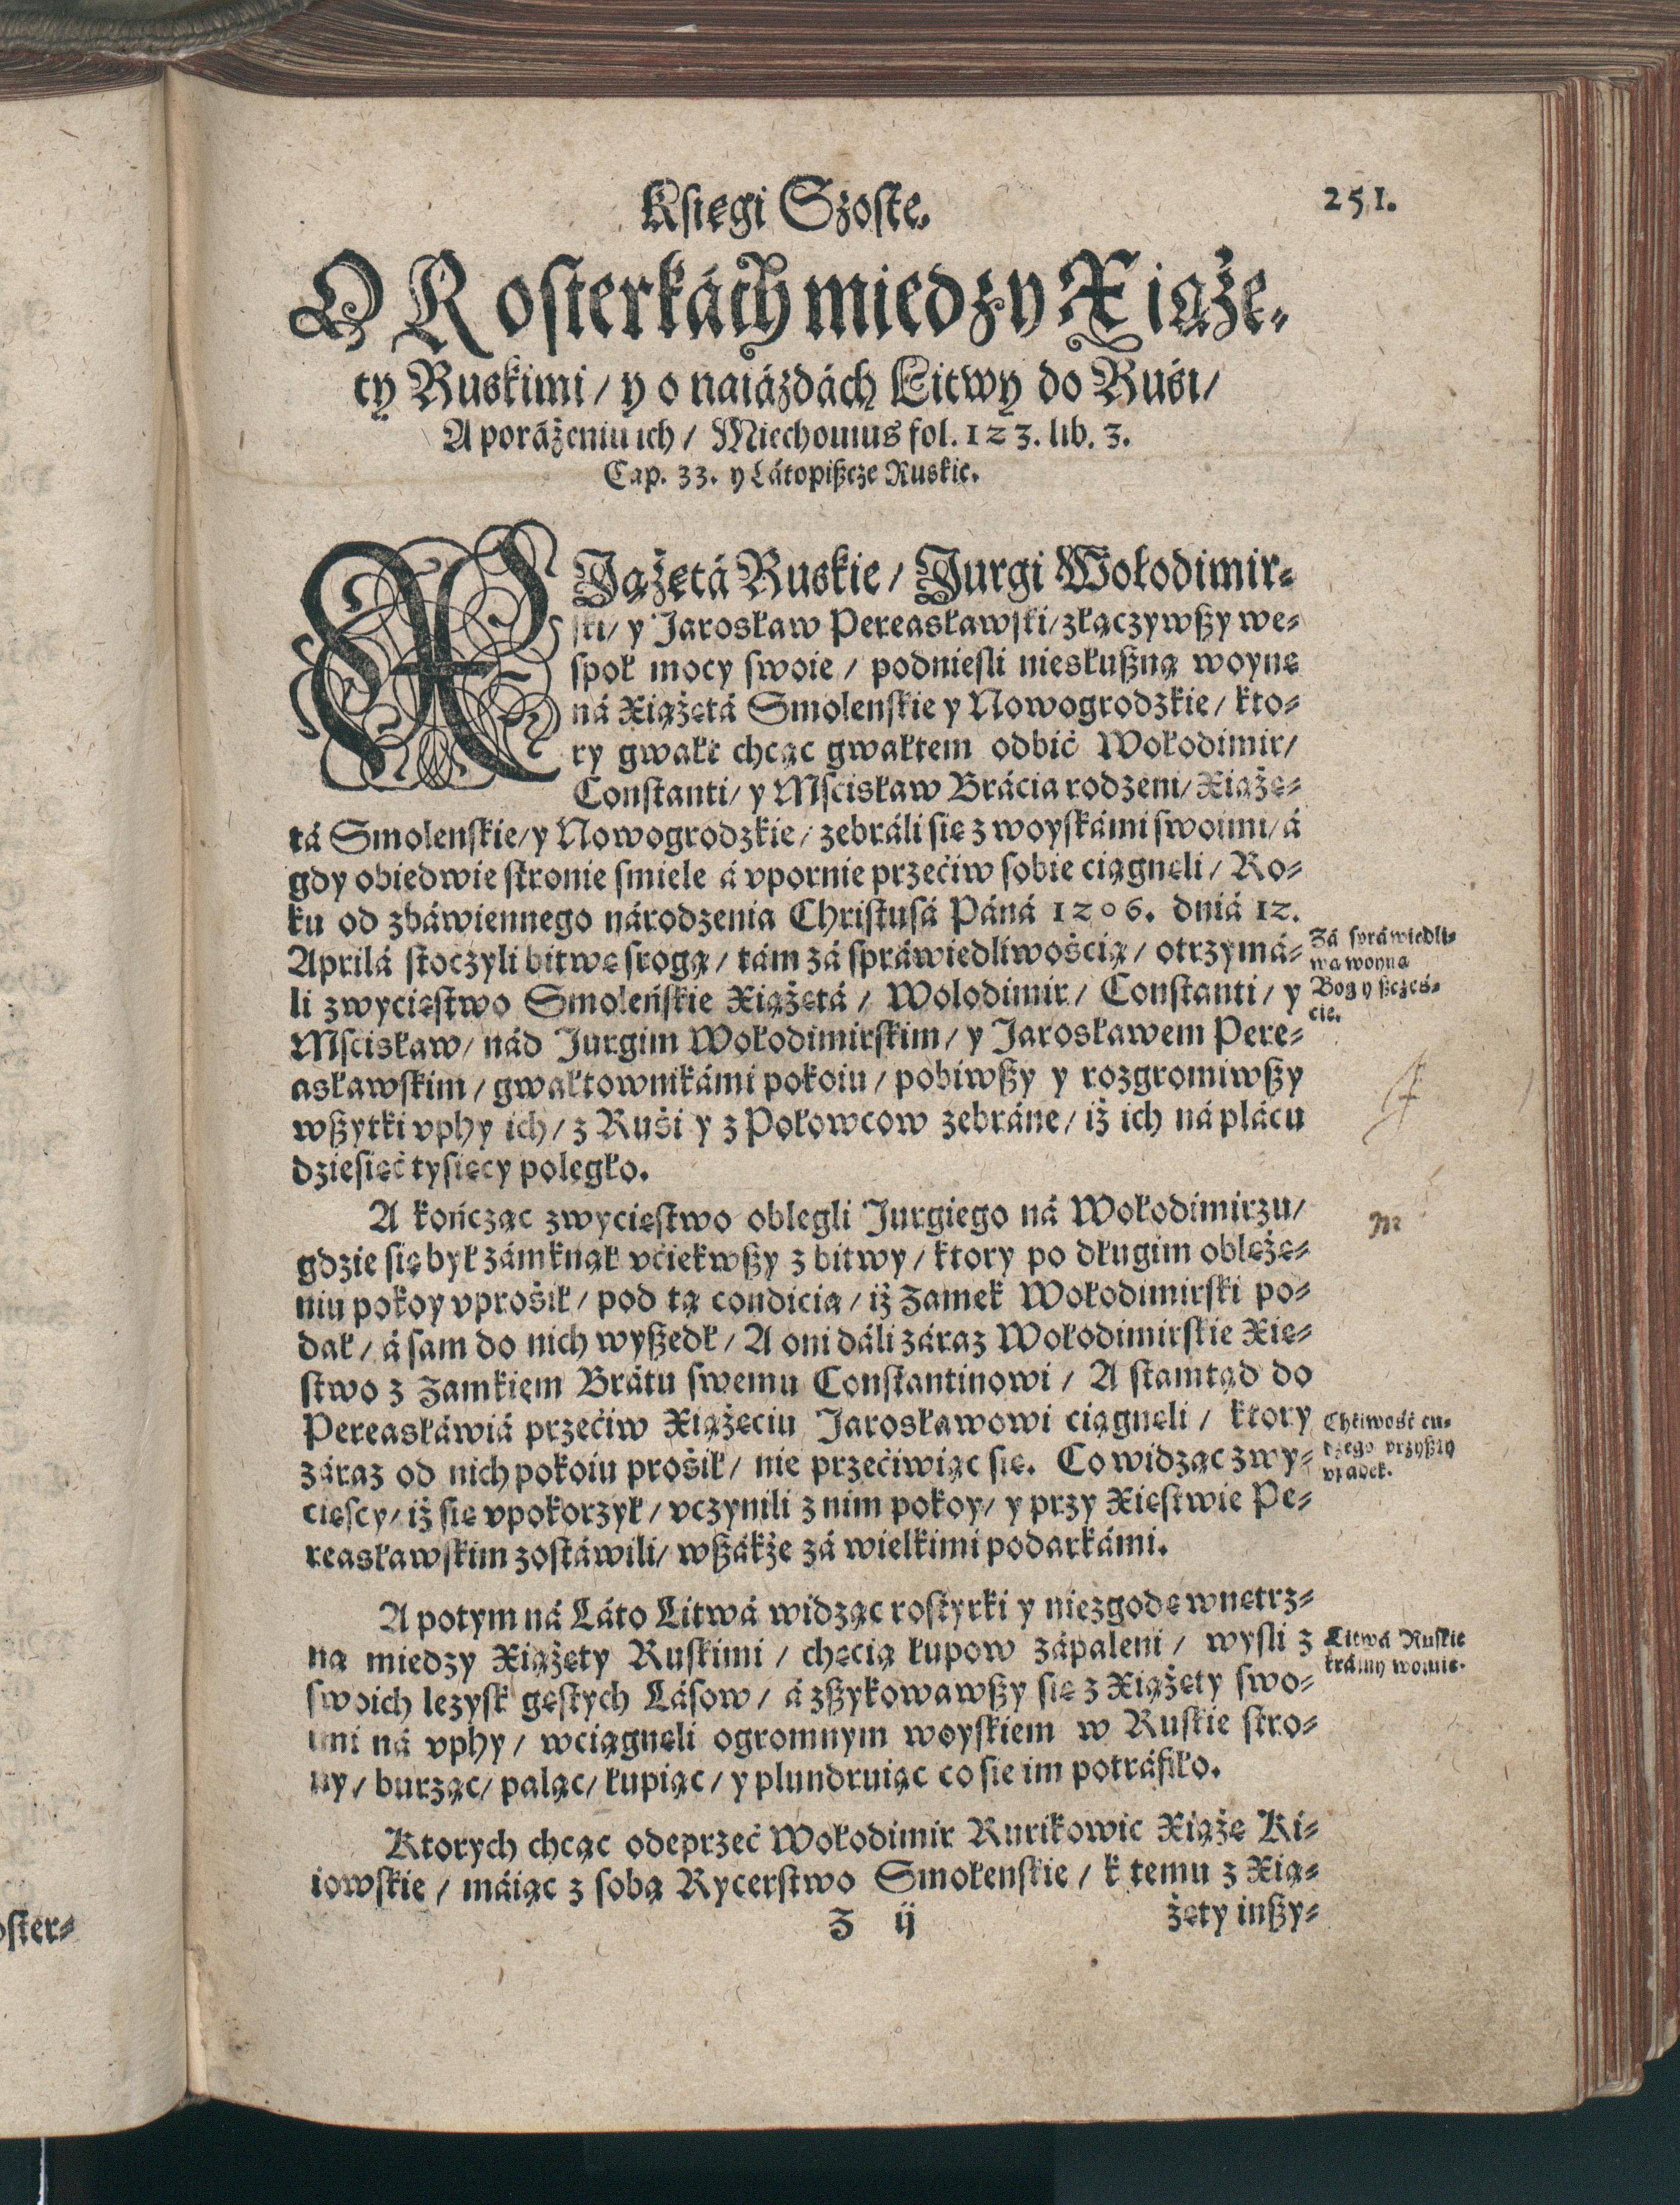 Księgi Szoste.
251.
O Rosterkách miedzy Xiąże-
ty Ruskimi / y o naiázdách Litwy do Ruśi /
A poráżeniu ich / Miechouius fol. 123. lib. 3.
Cap. 33. y Látopißcze Ruskie.
XIążętá Ruskie / Jurgi Wołodimir-
ski / y Jarosław Pereasławski / złączywßy we-
społ mocy swoie / podniesli niesłußną woynę
ná Xiążętá Smolenskie y Nowogrodzkie / kto-
ry gwałt chcąc gwałtem odbić Wołodimir /
Constanti / y Mścisław Brácia rodzeni / Xiąże-
tá Smolenskie / y Nowogrodzkie / zebráli się z woyskámi swoimi / á
gdy obiedwie stronie smiele á vpornie przećiw sobie ciągnęli / Ro-
ku od zbáwiennego národzenia Christusá Páná 1206. dniá 12.
Aprilá stoczyli bitwę srogą / tám zá spráwiedliwośćią / otrzymá-
li zwycięstwo Smoleńskie Xiążętá / Wolodimir / Constanti / y
Mścisław / nád Jurgim Wołodimirskim / y Jarosławem Pere-
asławskim / gwałtownikámi pokoiu / pobiwßy y rozgromiwßy
wßytki vphy ich / z Ruśi y z Połowcow zebráne / iż ich ná plácu
dziesięć tysięcy poległo.
Zá spráwiedli-
wą woyną
Bog y ßczęś-
cie.
A kończąc zwycięstwo oblegli Jurgiego ná Wołodimirzu /
gdzie się był zámknął vćiekwßy z bitwy / ktory po długim obleże-
niu pokoy vprośił / pod tą condicią / iż Zamek Wołodimirski po-
dał / á sam do nich wyßedł / A oni dáli záraz Wołodimirskie Xię-
stwo z Zamkiem Brátu swemu Constantinowi / A stamtąd do
Pereasłáwiá przećiw Xiążęciu Jarosławowi ciągnęli / ktory
záraz od nich pokoiu prośił / nie przećiwiąc się. Co widząc zwy-
cięscy / iż się vpokorzył / vczynili z nim pokoy / y przy Xięstwie Pe-
reasławskim zostáwili / wßákże zá wielkimi podarkámi.
Chćiwość cu-
dzego przyßły
vpadek.
A potym ná Láto Litwá widząc rostyrki y niezgodę wnętrz-
ną miedzy Xiążęty Ruskimi / chęcią łupow zápaleni / wysli z
swoich lezysk gęstych Lásow / á zßykowawßy się z Xiążęty swo-
imi ná vphy / wciągnęli ogromnym woyskiem w Ruskie stro-
ny / burząc / paląc / łupiąc / y plundruiąc co się im potráfiło.
Litwá Ruskie
kráiny woiuie.
Ktorych chcąc odeprzeć Wołodimir Rurikowic Xiążę Ki-
iowskie / máiąc z sobą Rycerstwo Smołenskie / k temu z Xią-
Z ij
żęty inßy-
oster-